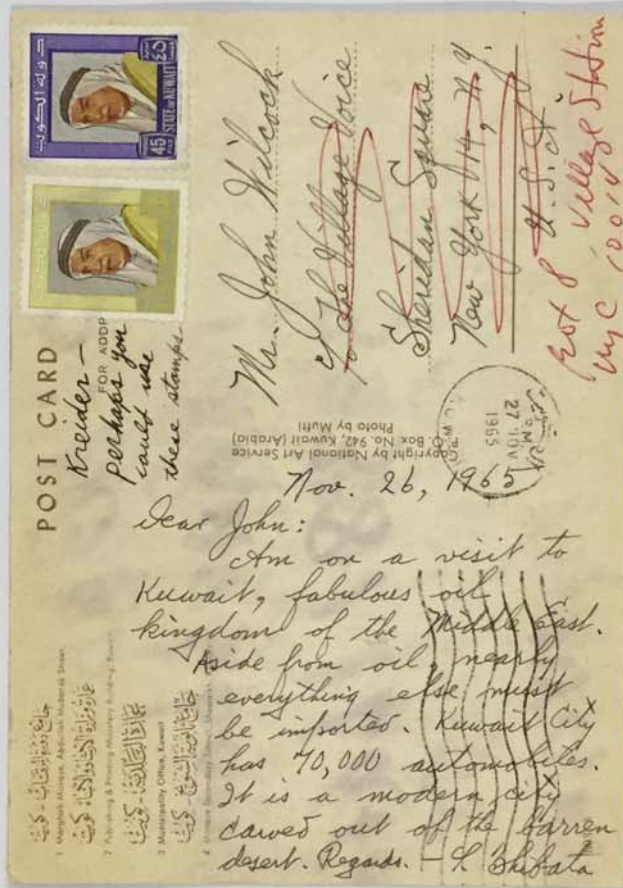 POST CARD
FOR ADDR
Kreider —
perhaps you
could use
these stamps
دولة الكويت
45
STATE OF KUWAIT
٤٥
Mr. John Wilcock
c/o The Village Voice
Sheridan Square
New York 14, N.Y.
U.S.A.
Box 8 Village Station
NYC 10014
KUWAIT
27 NOV
1965
Copyright by National Art Service
P.O. Box No. 942, Kuwait (Arabia)
Photo by Mufti
Nov. 26, 1965
Dear John:
Am on a visit to
Kuwait, fabulous oil
kingdom of the Middle East.
Aside from oil, nearly
everything else must
be imported. Kuwait City
has 70,000 automobiles.
It is a modern city
carved out of the barren
desert. Regards. — Y. Shibata
1 Mosque, Abdullah Mubarak Street,
2 Publishing & Printing Ministry Building, Kuwait
3 Municipality Office, Kuwait
4 Secondary School,